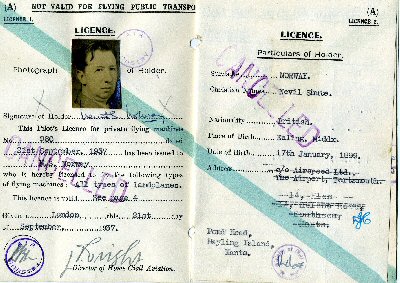 (A) NOT VALID FOR FLYING PUBLIC TRANSPO
LICENCE 1.
LICENCE.
Photograph of Holder.
Signature of Holder
This Pilot's Licence for private flying machines
No. 980 dated
21st September, 1937 has been issued to
N.S. Norway
who is hereby licensed to fly the following types
of flying machines: All types of landplanes.
This licence is valid until See page 4
Given in London, this 21st day
of September, 1937.
Director of Home Civil Aviation.
CANCELLED
(A)
LICENCE 2.
LICENCE.
Particulars of Holder.
Surname NORWAY.
Christian Names Nevil Shute.
Nationality British.
Place of Birth Ealing, Middx.
Date of Birth 17th January, 1899.
Address c/o Airspeed Ltd.,
The Airport, Portsmouth.
Pond Head,
Hayling Island,
Hants.
CANCELLED